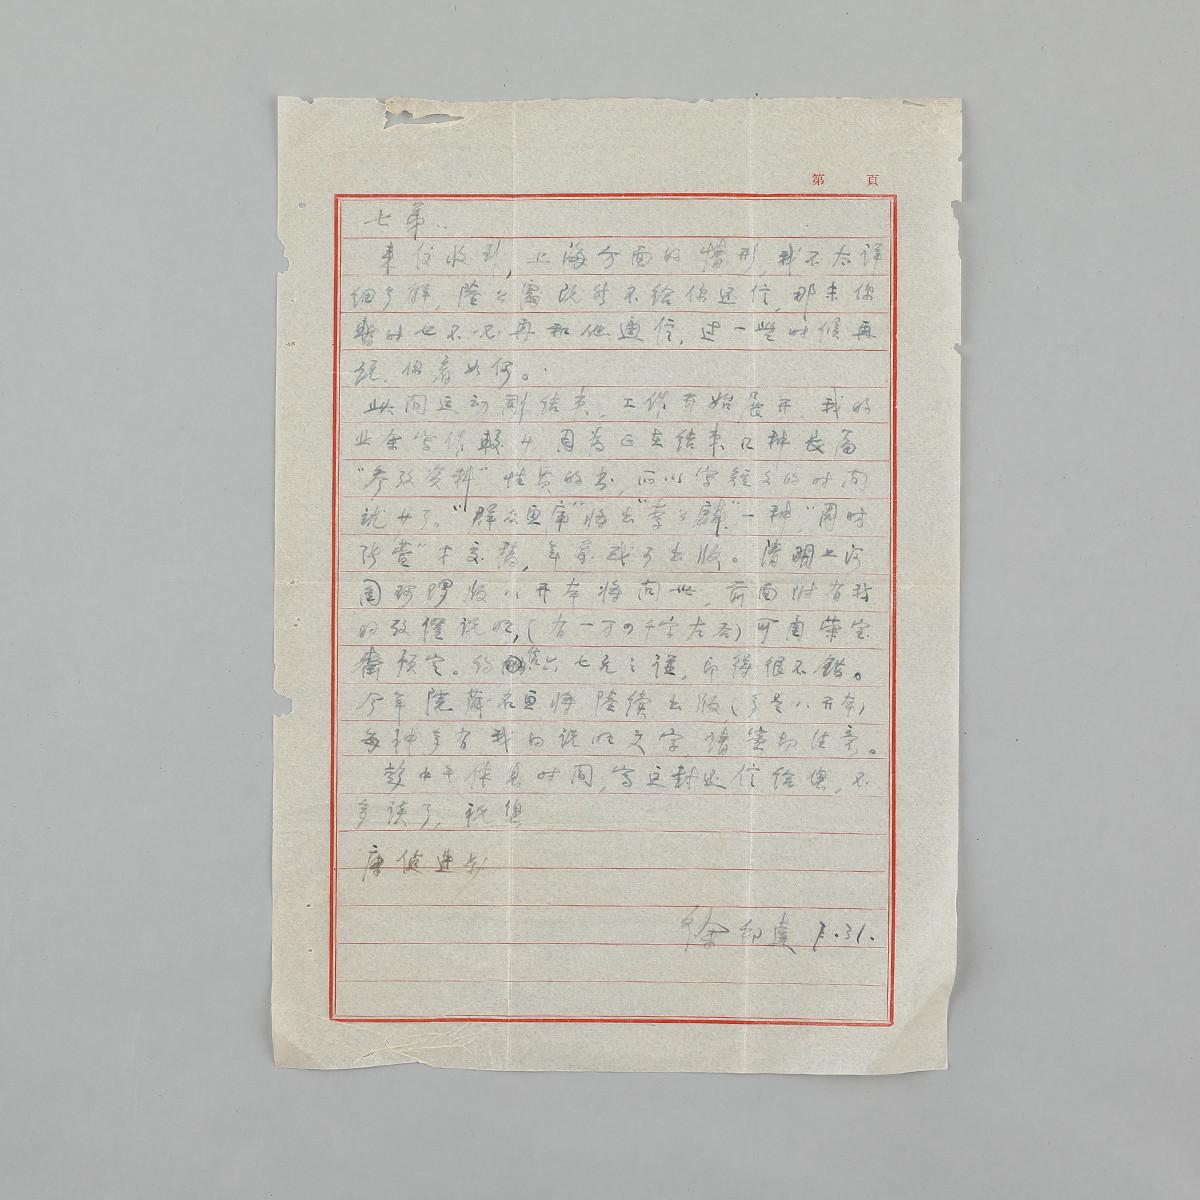 第 頁
七弟：
来信收到，上海方面的情形，我不太详
细了解，陆公需既然不给你还信，那末你
暂时也不必再和他通信，过一些时候再
说，你看如何。
此间运动刚结束，工作开始展开，我的
业余写作较少，因为正在结束几种长篇
"参考资料"性质的书，所以写短文的时间
就少了。"群众画库"将出"李公麟"一种，"周昉
张萱"才交稿，年前或可出版。清明上河
图珂罗版八开本将问世，前面附有我
的考证说明，（有一万四千字左右）可向荣宝
斋预定。约售六七元之谱，印得很不错。
今年院藏名画将陆续出版，（多是八开本）
每种多有我的说明文字，请密切注意。
趁中午休息时间，写这封还信给您，不
多谈了，祝俱
康健进步
徐邦达 7.31.